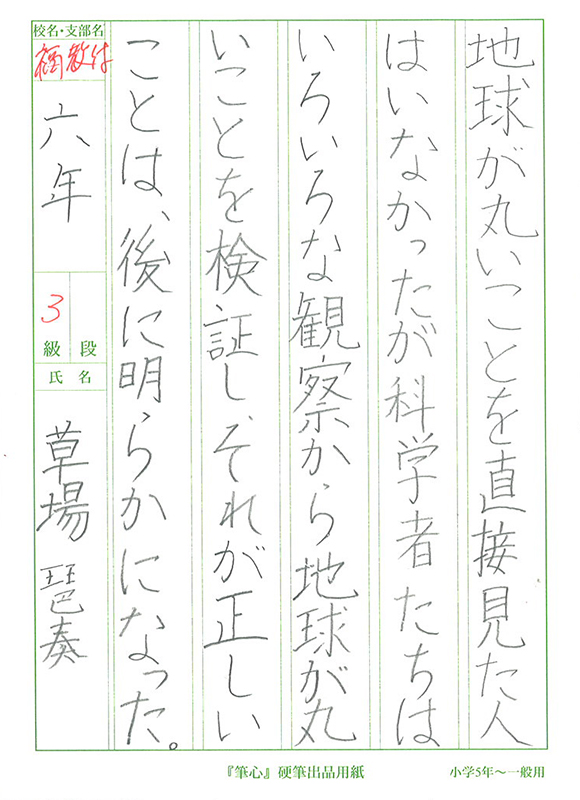 地球が丸いことを直接見た人
はいなかったが科学者たちは
いろいろな観察から地球が丸
いことを検証し、それが正しい
ことは、後に明らかになった。
校名・支部名
六年
3
級 段
氏名
草場 琶奏
『筆心』硬筆出品用紙
小学5年〜一般用